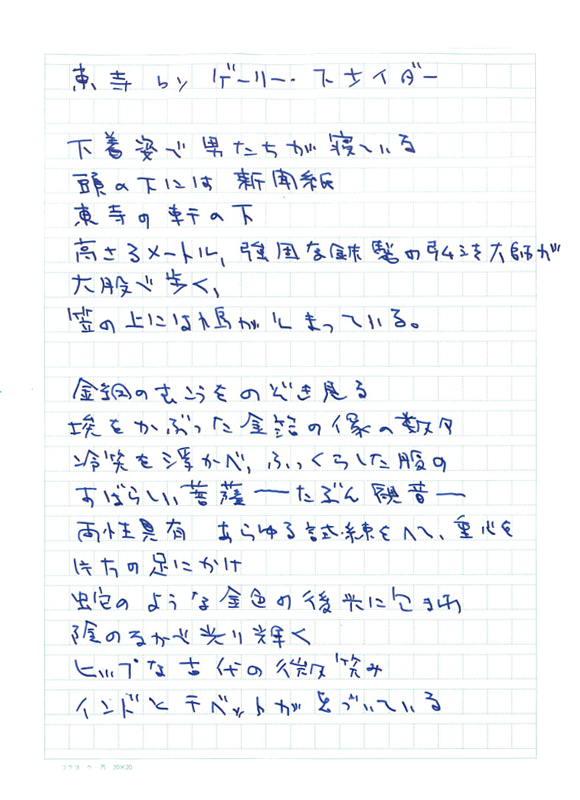 東寺 by ゲーリー・スナイダー
下着姿で男たちが寝ている
頭の下には 新聞紙
東寺の軒の下
高さ3メートル、強固な鉄製の弘法大師が
大股で歩く、
笠の上には鳩がとまっている。
金網のむこうをのぞき見る
埃をかぶった金箔の像の数々
冷笑を浮かべ、ふっくらした腹の
すばらしい菩薩──たぶん観音─
両性具有 あらゆる試練をへて、重心を
片方の足にかけ
蛇のような金色の後光に包まれ
陰のなかで光り輝く
ヒップな古代の微笑み
インドとチベットが息づいている
コクヨ ケ- 20×20